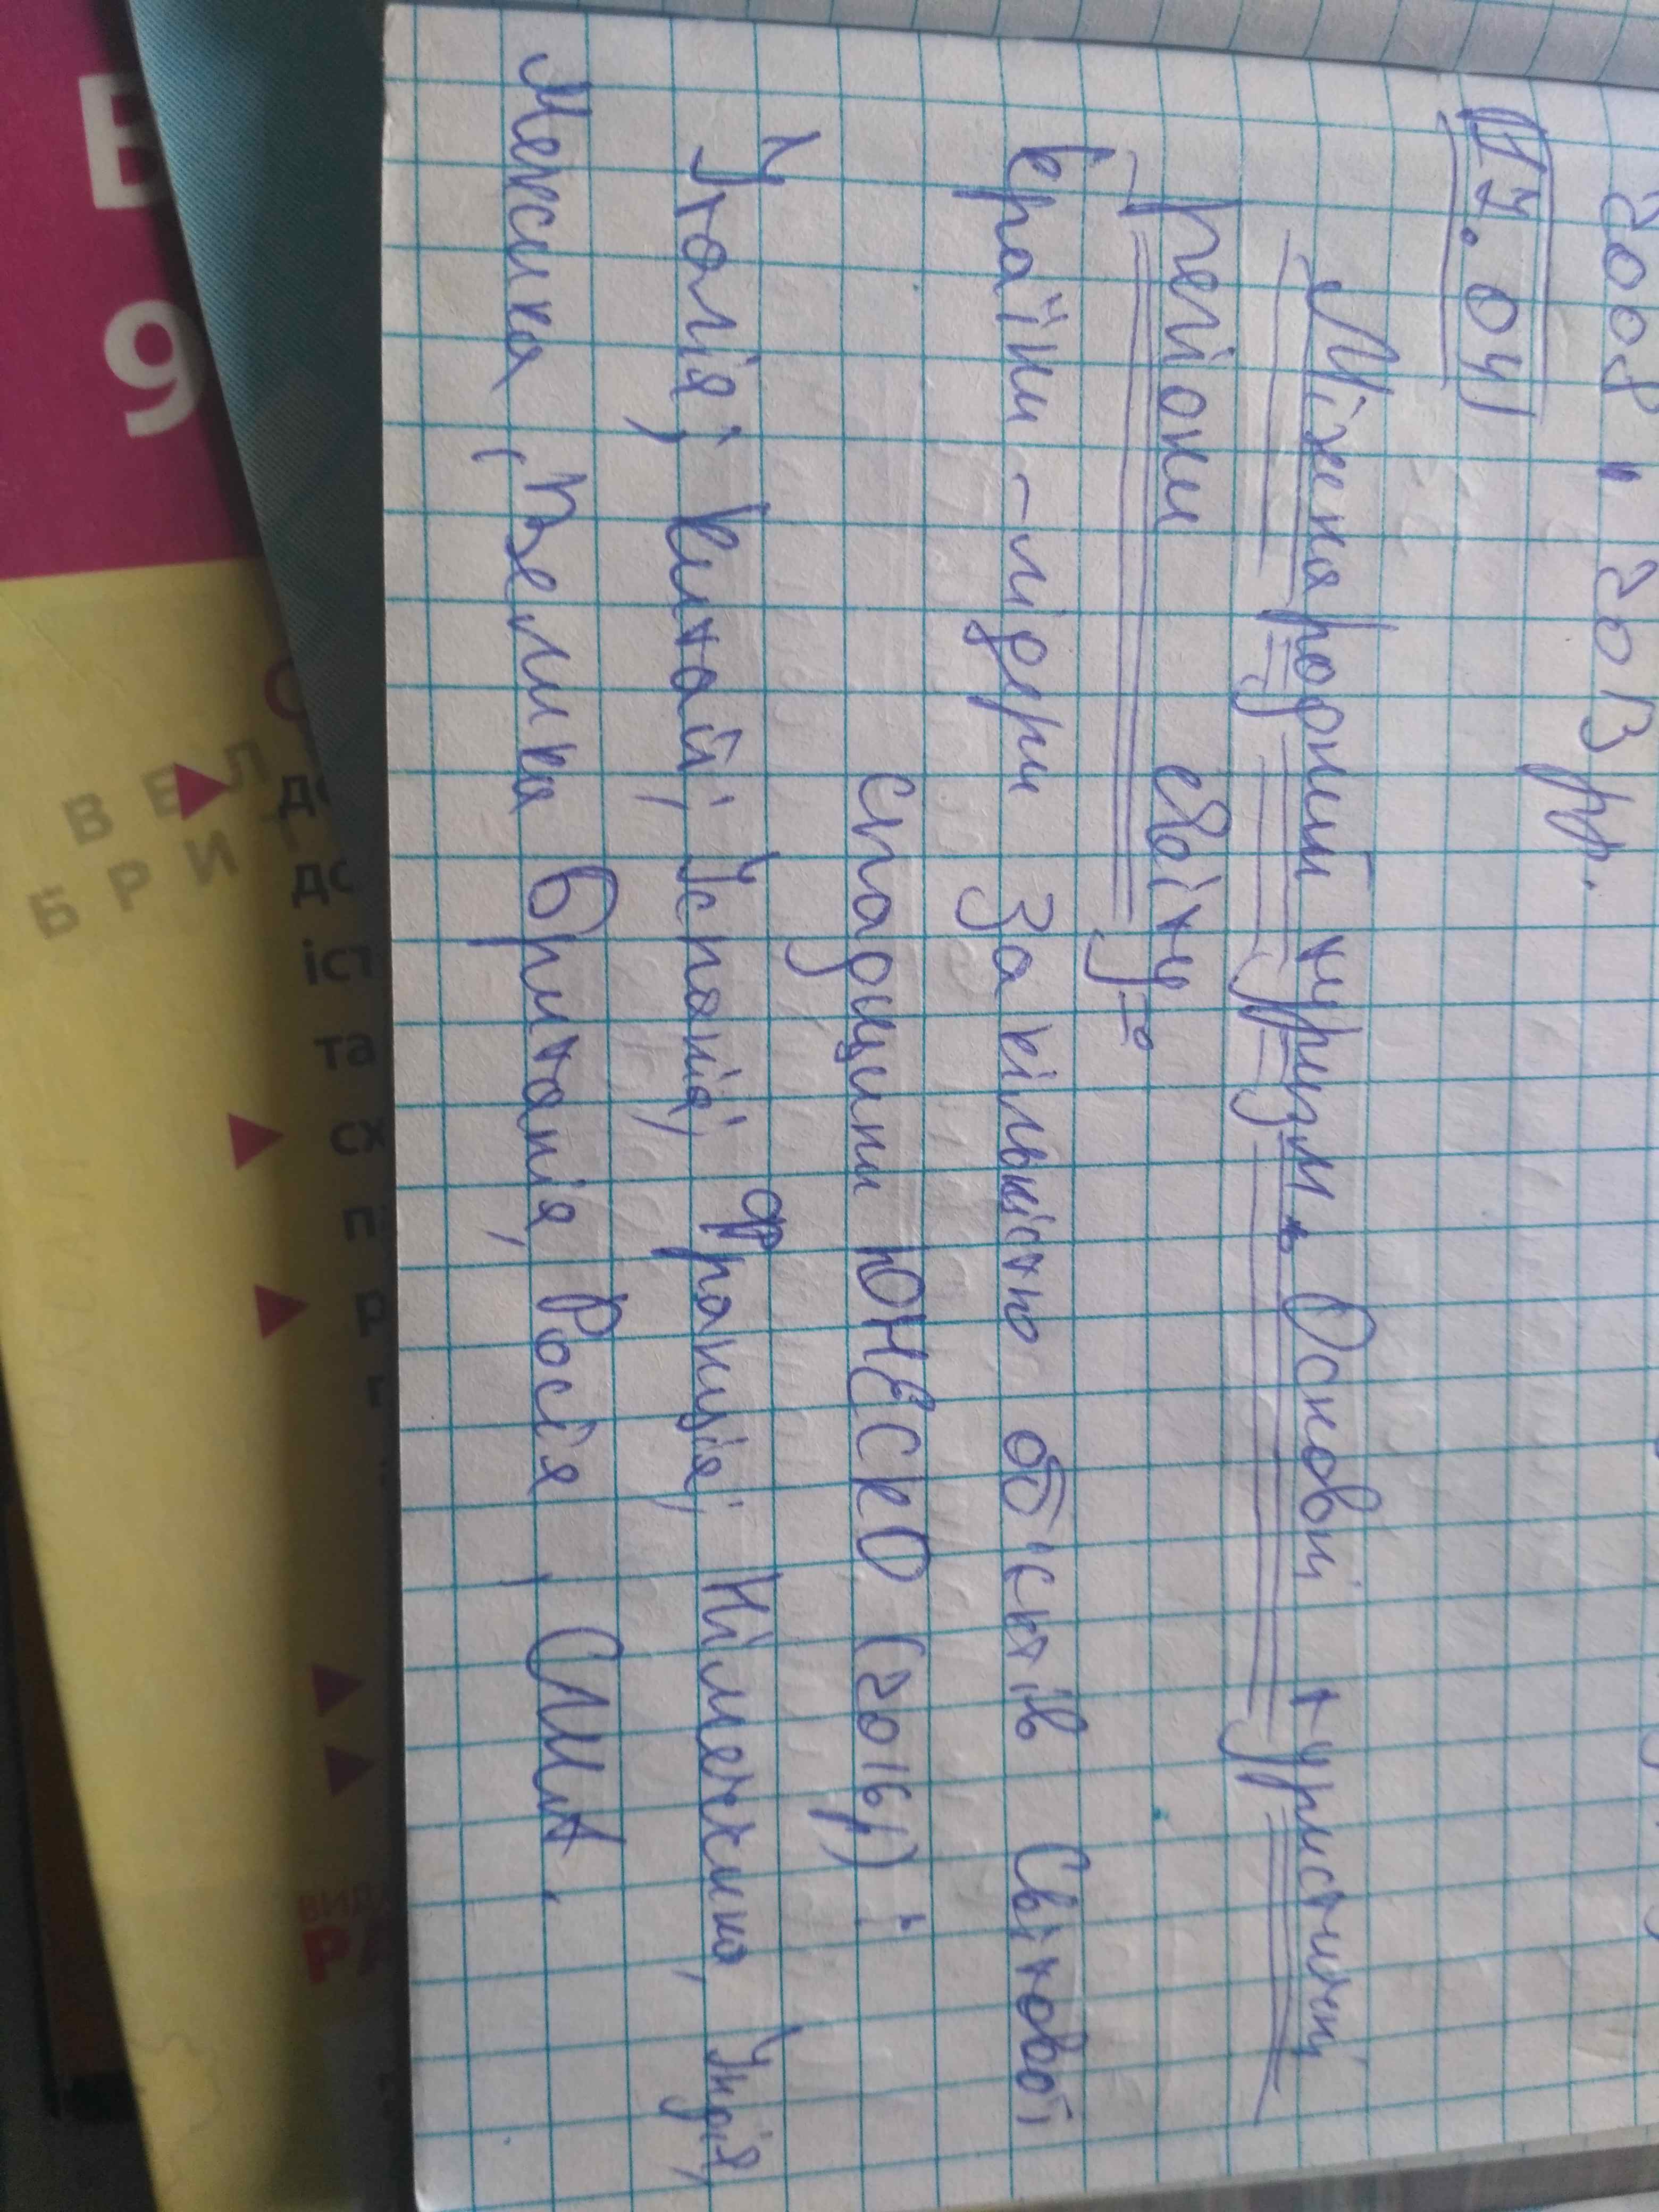 2008, 2013 рр.
17.04
Міжнародний туризм. Основні туристичні
регіони світу.
Країни-лідери за кількістю об'єктів Світової
спадщини ЮНЕСКО (2016р)
Італія, Китай, Іспанія, Франція, Німеччина, Індія,
Мексика, Велика Британія, Росія, США.
В
9
ВЕЛ
БРИТ
до
до
іст
та
сх
п
р
РА